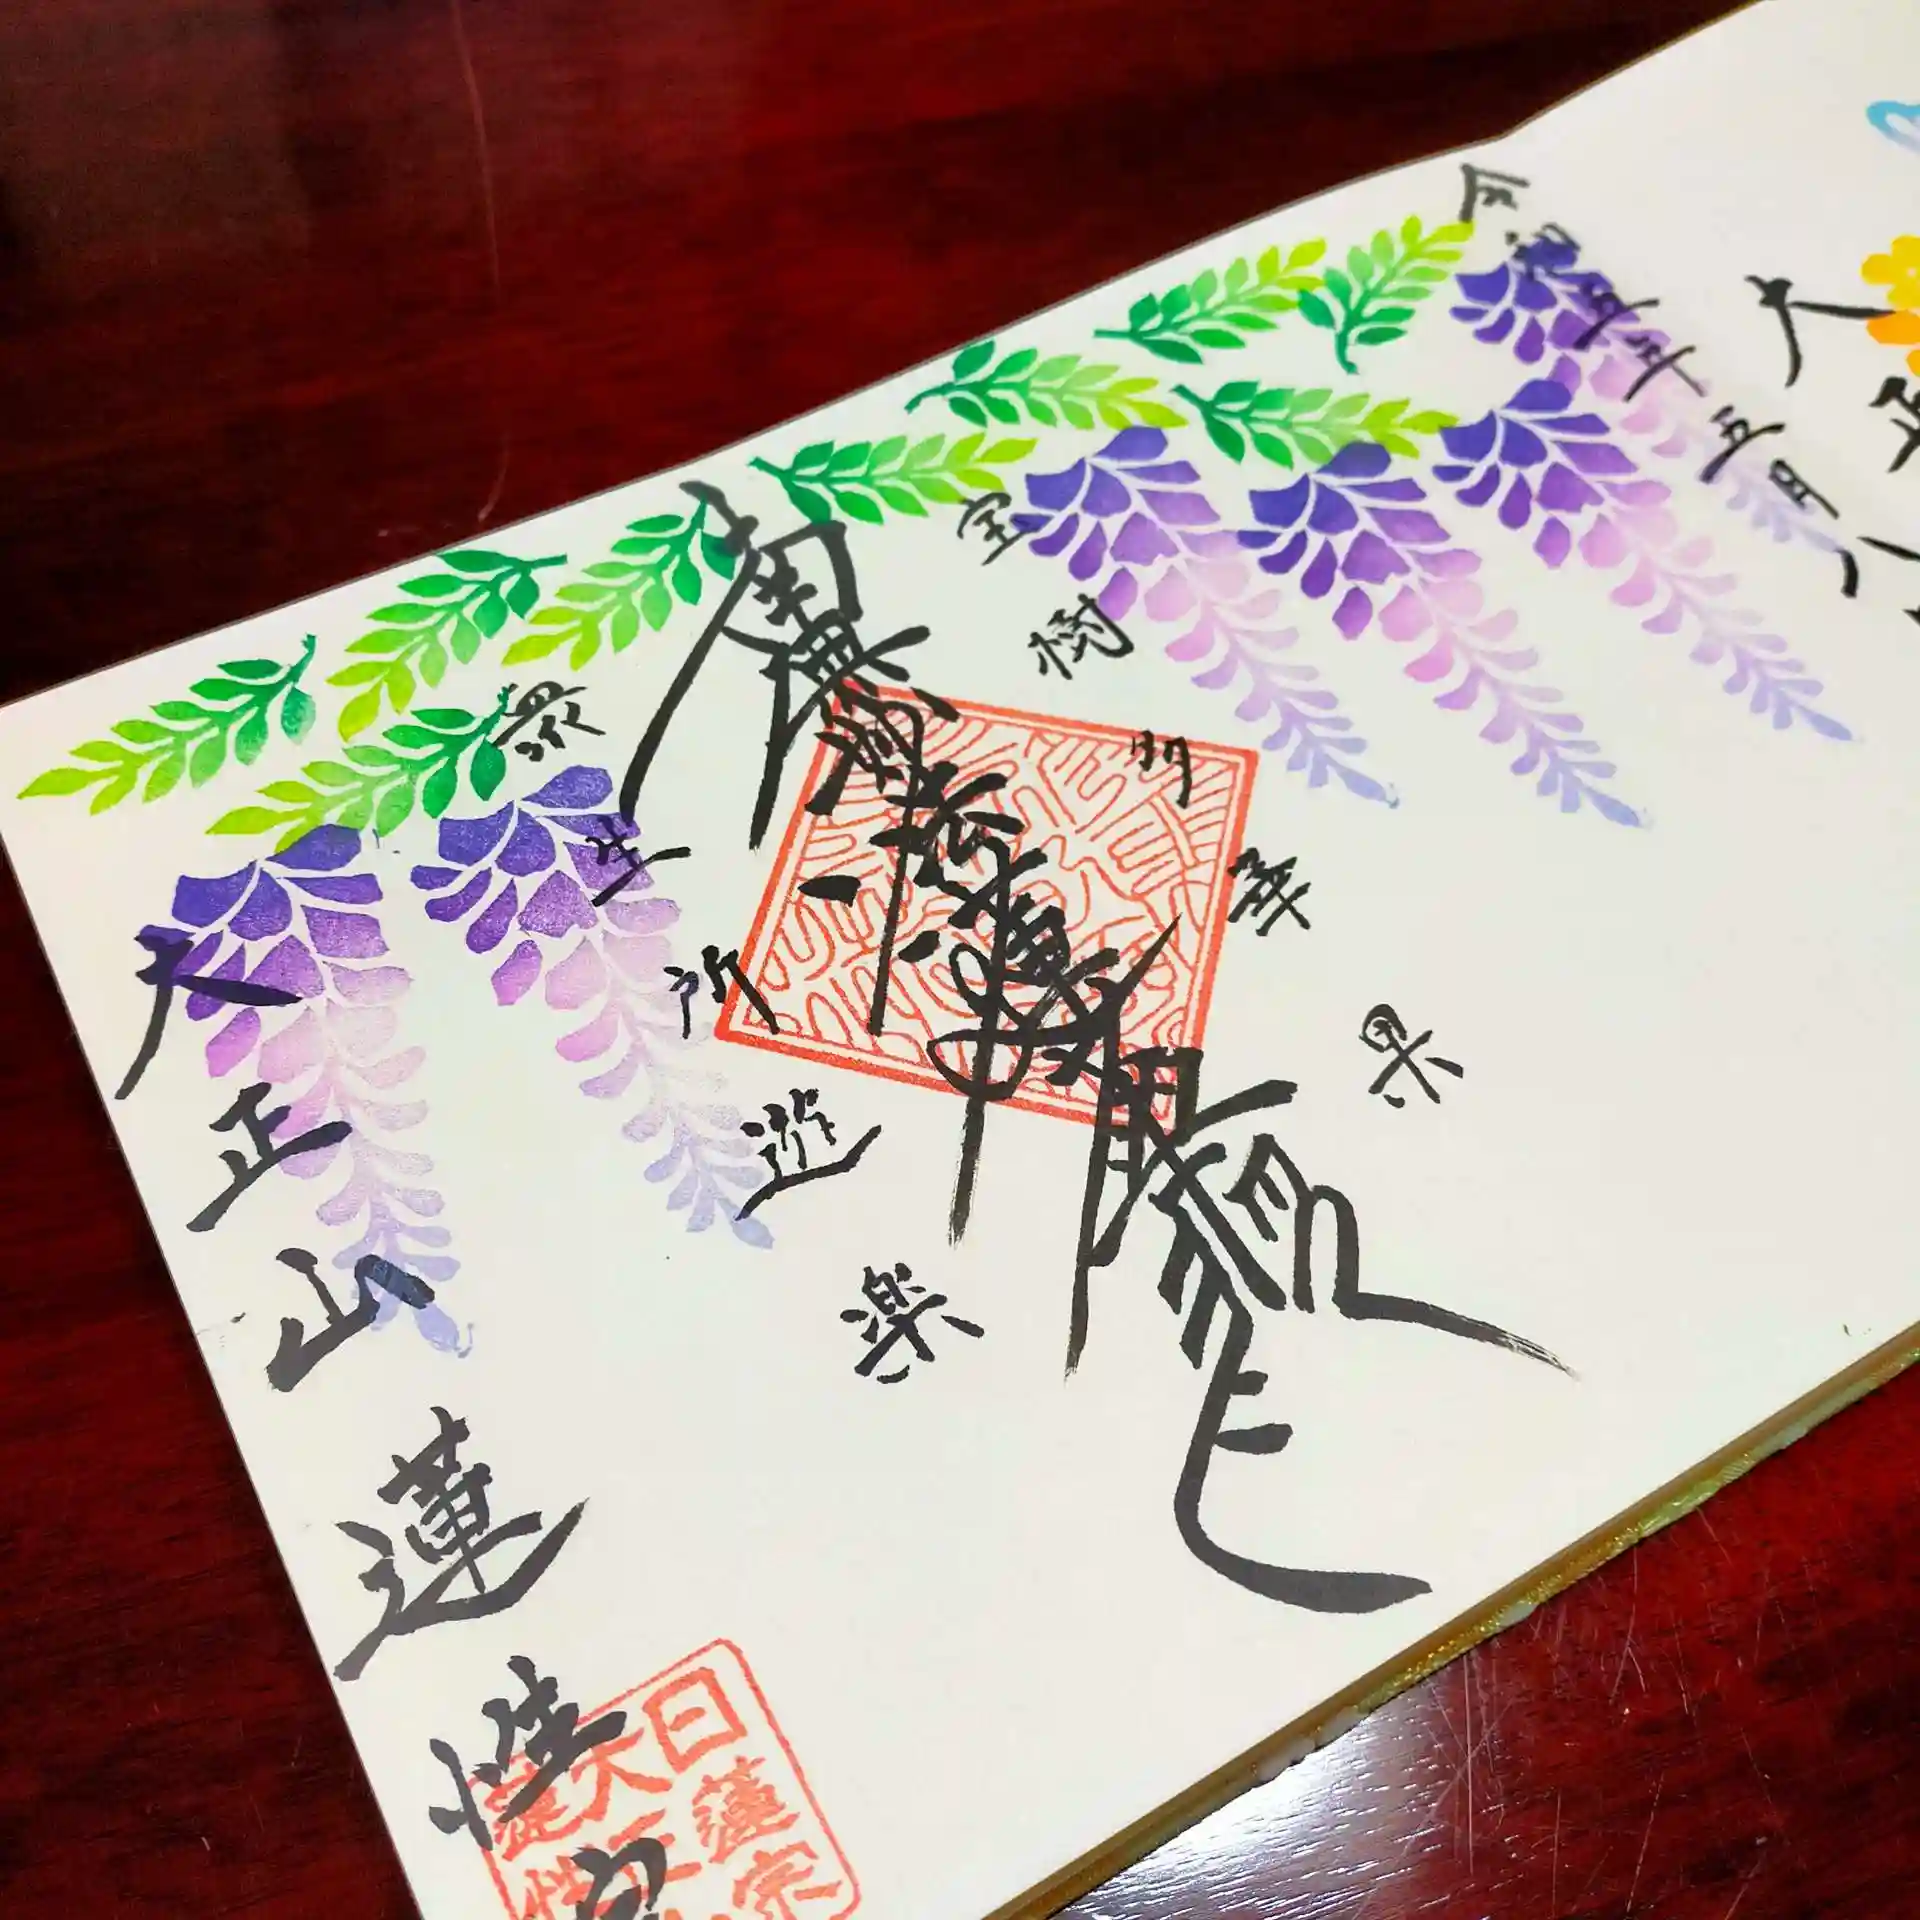 大正
令和五年五月八
宝樹多華果
南無妙法蓮華経
衆生所遊楽
大正山蓮性
日蓮宗
大正
蓮性